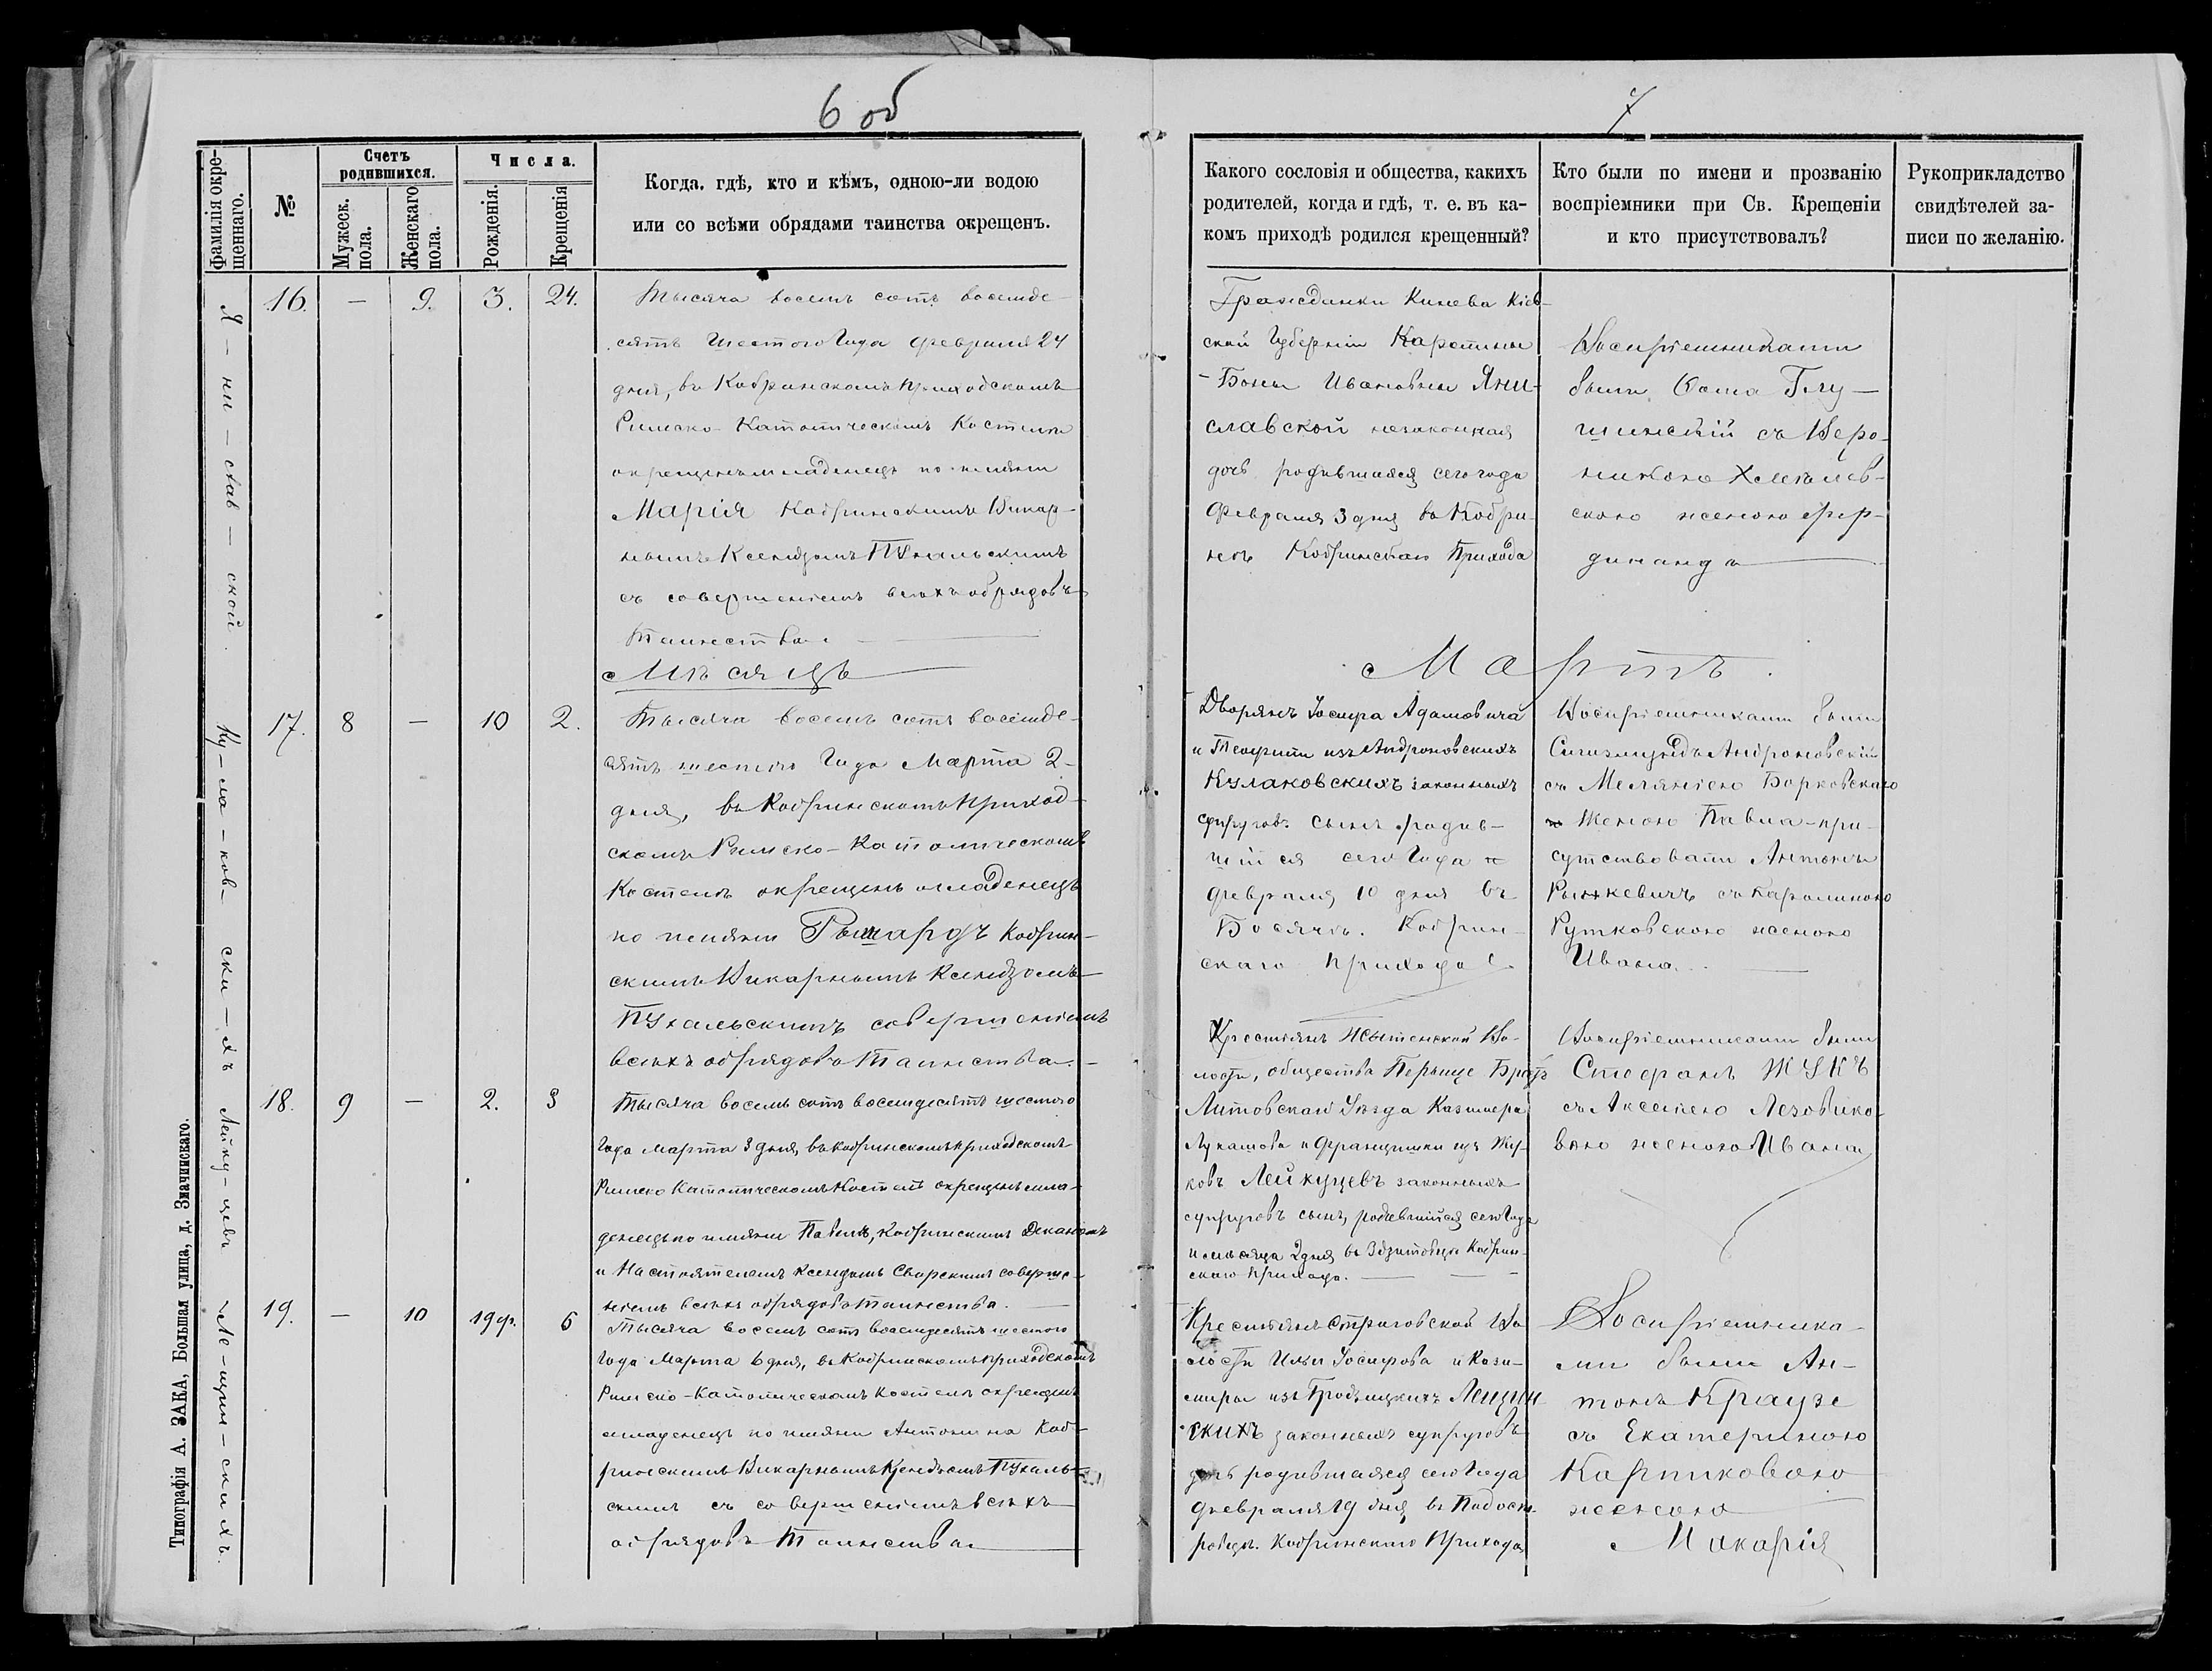 6 об
7
Фамилія окре-
щеннаго.
№
Счетъ
родившихся.
Мужеск.
пола.
Женскаго
пола.
Числа.
Рожденія.
Крещенія
Когда. гдѣ, кто и кѣмъ, одною-ли водою
или со всѣми обрядами таинства окрещенъ.
Какого сословія и общества, какихъ
родителей, когда и гдѣ, т. е. въ ка-
комъ приходѣ родился крещенный?
Кто были по имени и прозванію
воспріемники при Св. Крещеніи
и кто присутствовалъ?
Рукоприкладство
свидѣтелей за-
писи по желанію.
Я - ни - слав - ской.
16.
—
9.
3.
24.
Тысяча восемь сотъ восемде-
сятъ шестого Года Февраля 24
дня, въ Кобринскомъ Приходскомъ
Римско-Католическомъ Костелѣ
окрещенъ младенецъ по имяни
Марія Кобринскимъ Викар-
нымъ Ксендзомъ Пухальскимъ
съ совершеніемъ всѣхъ обрядовъ
Таинства.
Гражданки Киева Кіев-
ской Губерніи
Ивановны Яни-
славской незаконная
дочь родившаяся сего года
Февраля 3 дня въ Кобри-
нѣ Кобринскаго Прихода
Воспріемниками
были Ѳома Глу-
шинскій съ Веро-
никою Хмѣлев-
скою женою Фер-
динанда
Мѣсяцъ
Мартъ.
Ку - ла - ков - ски - хъ
17.
8
—
10
2.
Тысяча восемь сотъ восемде-
сятъ шестого Года Марта 2
дня, въ Кобринскомъ Приход-
скомъ Римско-Католическомъ
Костелѣ окрещенъ младенецъ
по имяни Рышардъ Кобрин-
скимъ Викарнымъ Ксендзомъ
Пухальскимъ совершеніемъ
всѣхъ обрядовъ Таинства.
Дворянъ Іосифа Адамовича
и Теофили изъ Андроновскихъ
Кулаковскихъ законныхъ
супруговъ сынъ родив-
шійся сего Года
Февраля 10 дня въ
Босячѣ. Кобрин-
скаго Прихода
Воспріемниками были
Сигизмундъ Андроновскій
съ Меляніею Борковскаго
женою Павла - при-
сутствовали Антонъ
Рынкевичъ съ Каролиною
Рутковскою женою
Ивана.
Лейку - цевъ
18.
9
—
2.
3
Тысяча восемь сотъ восемдесятъ шестого
Года Марта 3 дня, въ Кобринскомъ Приходскомъ
Римско Католическомъ Костелѣ окрещенъ мла-
денецъ по имяни Павелъ, Кобринскимъ Деканомъ
и Настоятелемъ Ксендзомъ Сворскимъ соверше-
ніемъ всѣхъ обрядовъ Таинства.
Крестьянъ Жытенской Во-
лости, общества Перьище Брестъ
Литовскаго Уѣзда Казимера
Лукашова и Францишки изъ Жу-
ковъ Лейкуцевъ законныхъ
супруговъ сынъ, родившійся сего Года
и мѣсяца 2 дня въ Збзитовцѣ Кобрин-
скаго Прихода.
Воспріемниками были
Стефанъ Жукъ
съ Аксеніею Лезовико-
вою женою Ивана
Ле - щин - ски хъ.
19.
—
10
19 ф.
6
Тысяча восемь сотъ восемдесятъ шестого
Года Марта 6 дня, въ Кобринскомъ Приходскомъ
Римско-Католическомъ Костелѣ окрещенъ
младенецъ по имяни Антонина Коб-
ринскимъ Викарнымъ Ксендзомъ Пухаль-
скимъ съ совершеніемъ всѣхъ
обрядовъ Таинства
Крестьянъ Стриговской Во
лости Ильи Іосифова и Кази-
миры изъ Гробѣлицкихъ Лещин
скихъ законныхъ супруговъ
дочь родившаяся сего Года
Февраля 19 дня въ
Кобринскаго Прихода
Воспріемника-
ми были Ан-
тонъ Краузе
съ Екатериною
Карпиковою
женою
Макарія
Типографія А. ЗАКА, Большая улица, д. Значинскаго.